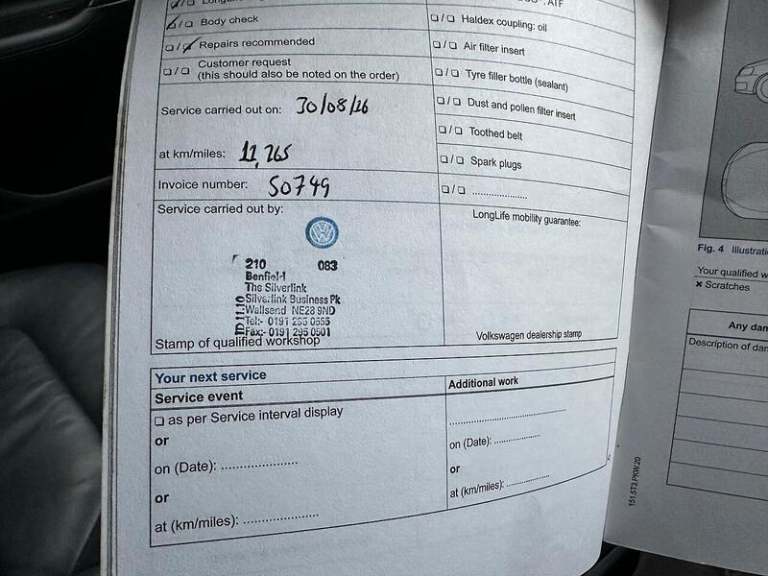 Body check
Repairs recommended
Customer request
(this should also be noted on the order)
Service carried out on: 30/08/16
at km/miles: 11,765
Invoice number: 50749
Service carried out by:
210 083
Benfield
The Silverlink
Silverlink Business Pk
Wallsend NE28 9ND
Tel:- 0191 295
Fax:- 0191 295 0501
Stamp of qualified workshop
ATF
Haldex coupling: oil
Air filter insert
Tyre filler bottle (sealant)
Dust and pollen filter insert
Toothed belt
Spark plugs
LongLife mobility guarantee:
Volkswagen dealership stamp
Your next service
Service event
as per Service interval display
or
on (Date):
or
at (km/miles):
Additional work
on (Date):
or
at (km/miles):
151.5T3.PKW.20
Fig. 4
Your qualified w
× Scratches
Any dam
Description of dam